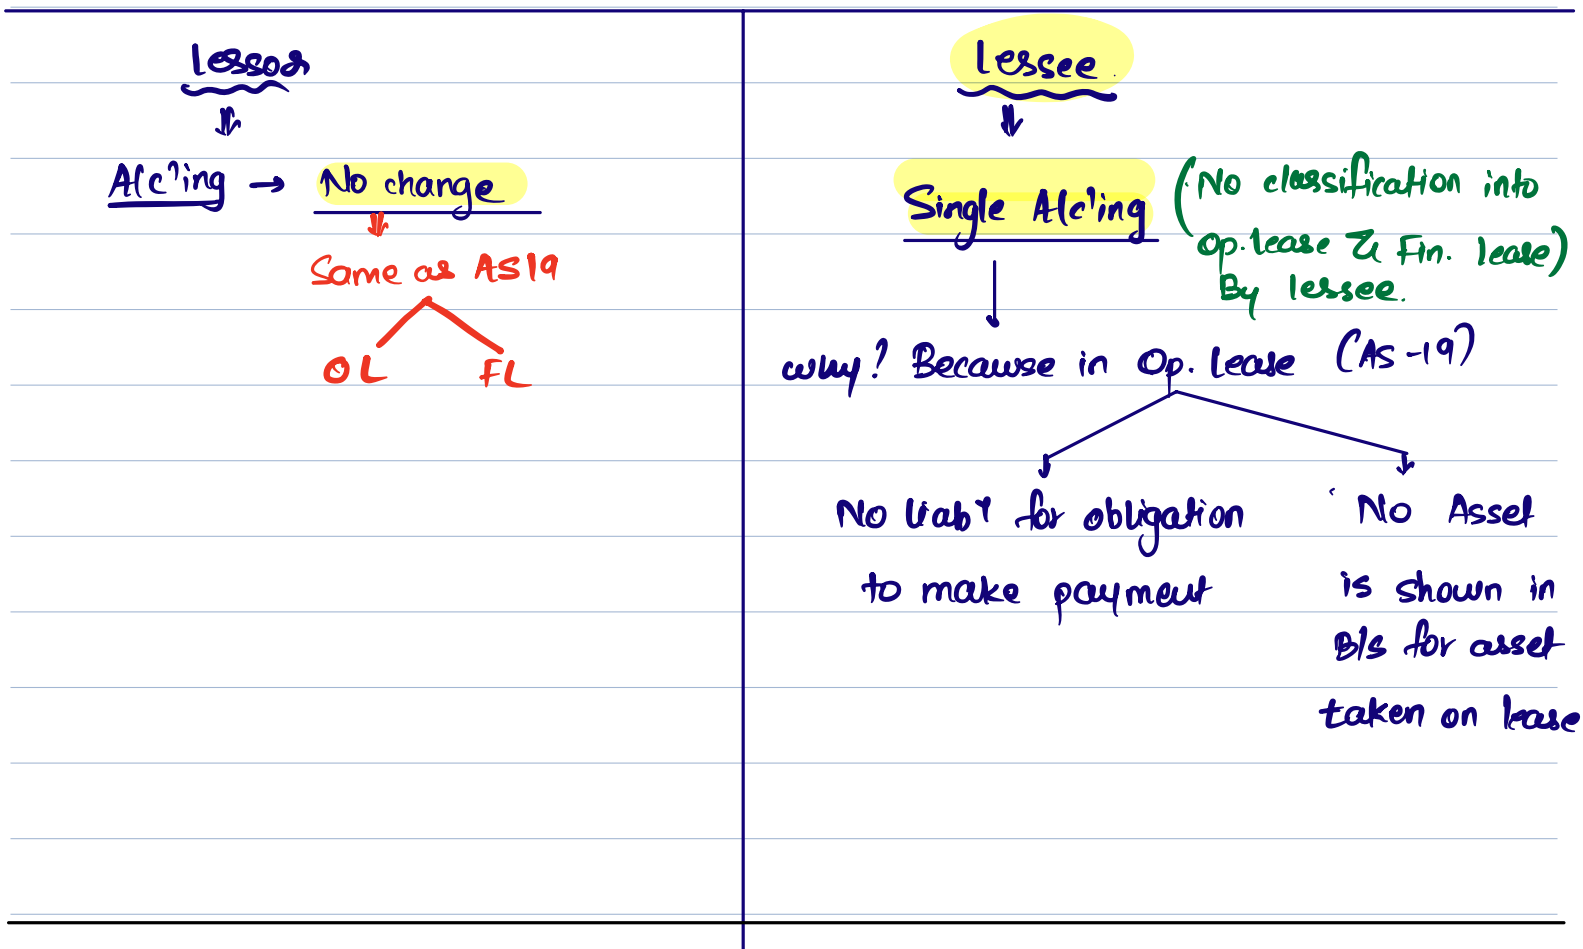 Lessor
A/c'ing → No change
Same as AS19
OL FL
Lessee
Single A/c'ing
(No classification into
Op. lease & Fin. lease)
By lessee.
why? Because in Op. lease (AS-19)
No liabY for obligation
to make payment
No Asset
is shown in
B/s for asset
taken on lease